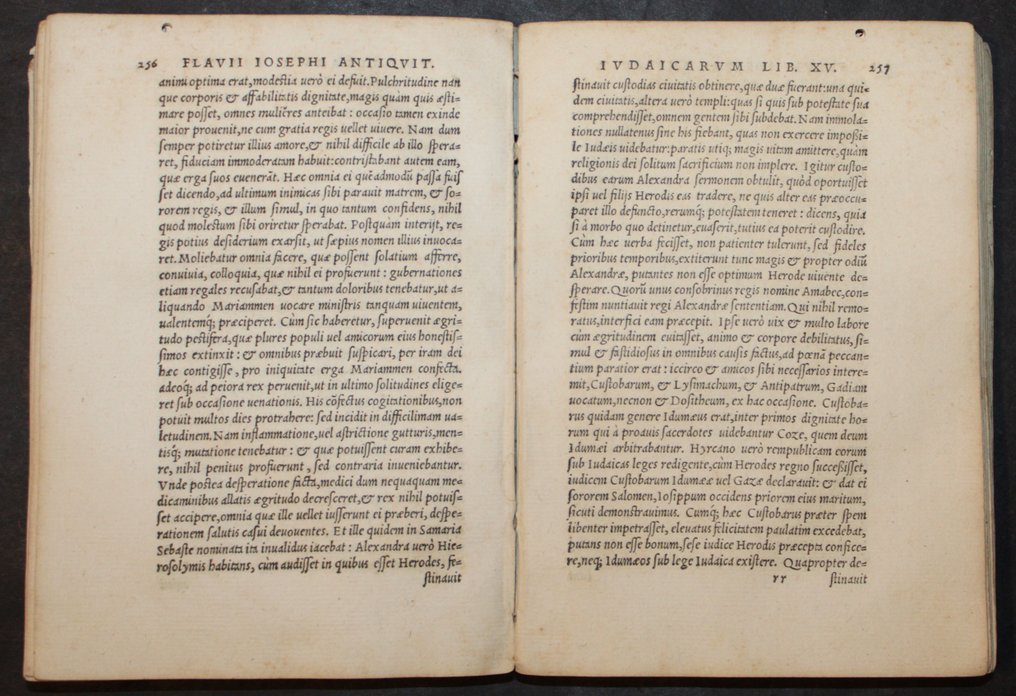 256 FLAVII IOSEPHI ANTIQVIT.
animi optima erat, modestia uerò ei defuit. Pulchritudine nan
que corporis & affabilitatis dignitate, magis quàm quis æsti-
mare posset, omnes mulieres anteibat: occasio tamen exinde
maior prouenit, ne cum gratia regis uellet uiuere. Nam dum
semper potiretur illius amore, & nihil difficile ab illo spera-
ret, fiduciam immoderatam habuit: contristabant autem eam,
quæ erga suos euenerãt. Hæc omnia ei quẽadmodũ passa fuis
set dicendo, ad ultimum inimicas sibi parauit matrem, & so-
rorem regis, & illum simul, in quo tantum confidens, nihil
quod molestum sibi oriretur sperabat. Postquàm interijt, re-
gis potius desiderium exarsit, ut sæpius nomen illius inuoca-
ret. Moliebatur omnia facere, quæ possent solatium afferre,
conuiuia, colloquia, quæ nihil ei profuerunt: gubernationes
etiam regales recusabat, & tantum doloribus tenebatur, ut a-
liquando Mariammen uocare ministris tanquam uiuentem,
ualentemq; præciperet. Cùm sic haberetur, superuenit ægri-
tudo pestifera, quæ plures populi uel amicorum eius honestis-
simos extinxit: & omnibus præbuit suspicari, per iram dei
hæc contigisse, pro iniquitate erga Mariammen confecta.
adeoq; ad peiora rex peruenit, ut in ultimo solitudines elige-
ret sub occasione uenationis. His cõfectus cogitationibus, non
potuit multos dies protrahere: sed incidit in difficilimam ua-
letudinem. Nam inflammatione, uel astrictione gutturis, men-
tisq; mutatione tenebatur: & quæ potuissent curam exhibe-
re, nihil penitus profuerunt, sed contraria inueniebantur.
Vnde postea desperatione facta, medici dum nequaquam me-
dicaminibus allatis ægritudo decresceret, & rex nihil potuis-
set accipere, omnia quæ ille uellet iusserunt ei præberi, despe-
rationem salutis casui deuouentes. Et ille quidem in Samaria
Sebaste nominata ita inualidus iacebat: Alexandra uerò Hie-
rosolymis habitans, cùm audisset in quibus esset Herodes, fe-
stinauit
IVDAICARVM LIB. XV. 257
stinauit custodias ciuitatis obtinere, quæ duæ fuerant: una qui-
dem ciuitatis, altera uerò templi: quas si quis sub potestate sua
comprehendisset, omnem gentem sibi subdebat. Nam immola-
tiones nullatenus sine his fiebant, quas non exercere impoßi-
le Iudæis uidebatur: paratis utiq; magis uitam amittere, quàm
religionis dei solitum sacrificium non implere. Igitur custo-
dibus earum Alexandra sermonem obtulit, quòd oportuisset
ipsi uel filijs Herodis eas tradere, ne quis alter eas præoccu-
paret illo defuncto, rerumq; potestatem teneret: dicens, quia
si à morbo quo detinetur, euaserit, tutius ea poterit custodire.
Cùm hæc uerba fecisset, non patienter tulerunt, sed fideles
prioribus temporibus, extiterunt tunc magis & propter odiũ
Alexandræ, putantes non esse optimum Herode uiuente de-
sperare. Quorũ unus consobrinus regis nomine Amabec, con-
festim nuntiauit regi Alexandræ sententiam. Qui nihil remo-
ratus, interfici eam præcepit. Ipse uerò uix & multo labore
cùm ægritudinem euitasset, animo & corpore debilitatus, si-
mul & fastidiosus in omnibus causis factus, ad pœnã peccan-
tium paratior erat: iccirco & amicos sibi necessarios intere-
mit, Custobarum, & Lysimachum, & Antipatrum, Gadiam
uocatum, necnon & Dositheum, ex hac occasione. Custoba-
rus quidam genere Idumæus erat, inter primos dignitate ho-
rum qui à proauis sacerdotes uidebantur Coze, quem deum
Idumæi arbitrabantur. Hyrcano uerò rempublicam eorum
sub Iudaicas leges redigente, cùm Herodes regno successisset,
iudicem Custobarum Idumææ uel Gazæ declarauit: & dat ei
sororem Salomen, Iosippum occidens priorem eius maritum,
sicuti demonstrauimus. Cumq; hæc Custobarus præter spem
libenter impetrasset, eleuatus felicitatem paulatim excedebat,
putans non esse bonum, sese iudice Herodis præcepta confice-
re, neq; Idumæos sub lege Iudaica existere. Quapropter de-
rr stinauit